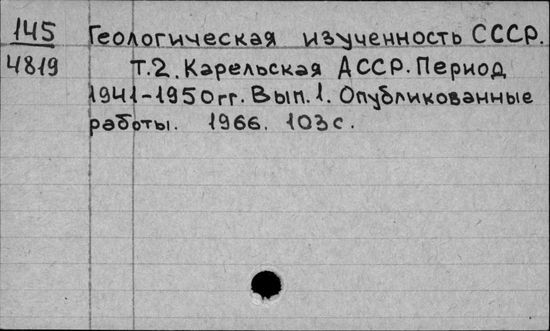 145 Геологическая изученность СССР.
4819 Т.2. Карельская АССР. Период
1941-1950гг. Вып.1. Опубликованные
работы. 1966. 103с.